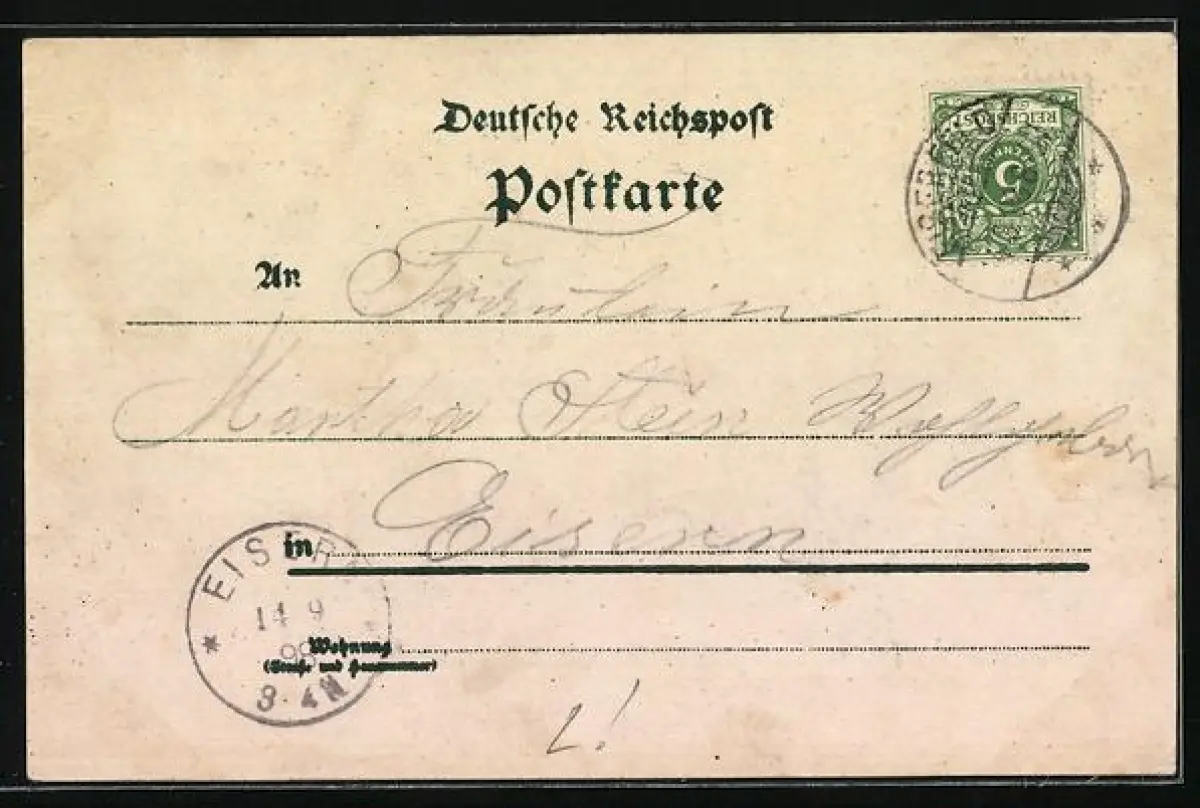 Deutsche Reichspost
Postkarte
REICHSPOST
5
An Fräulein
Martha Stein
in Eisern
EISERN
14 9
99
8-4N
Wohnung
(Straße und Hausnummer)
L!